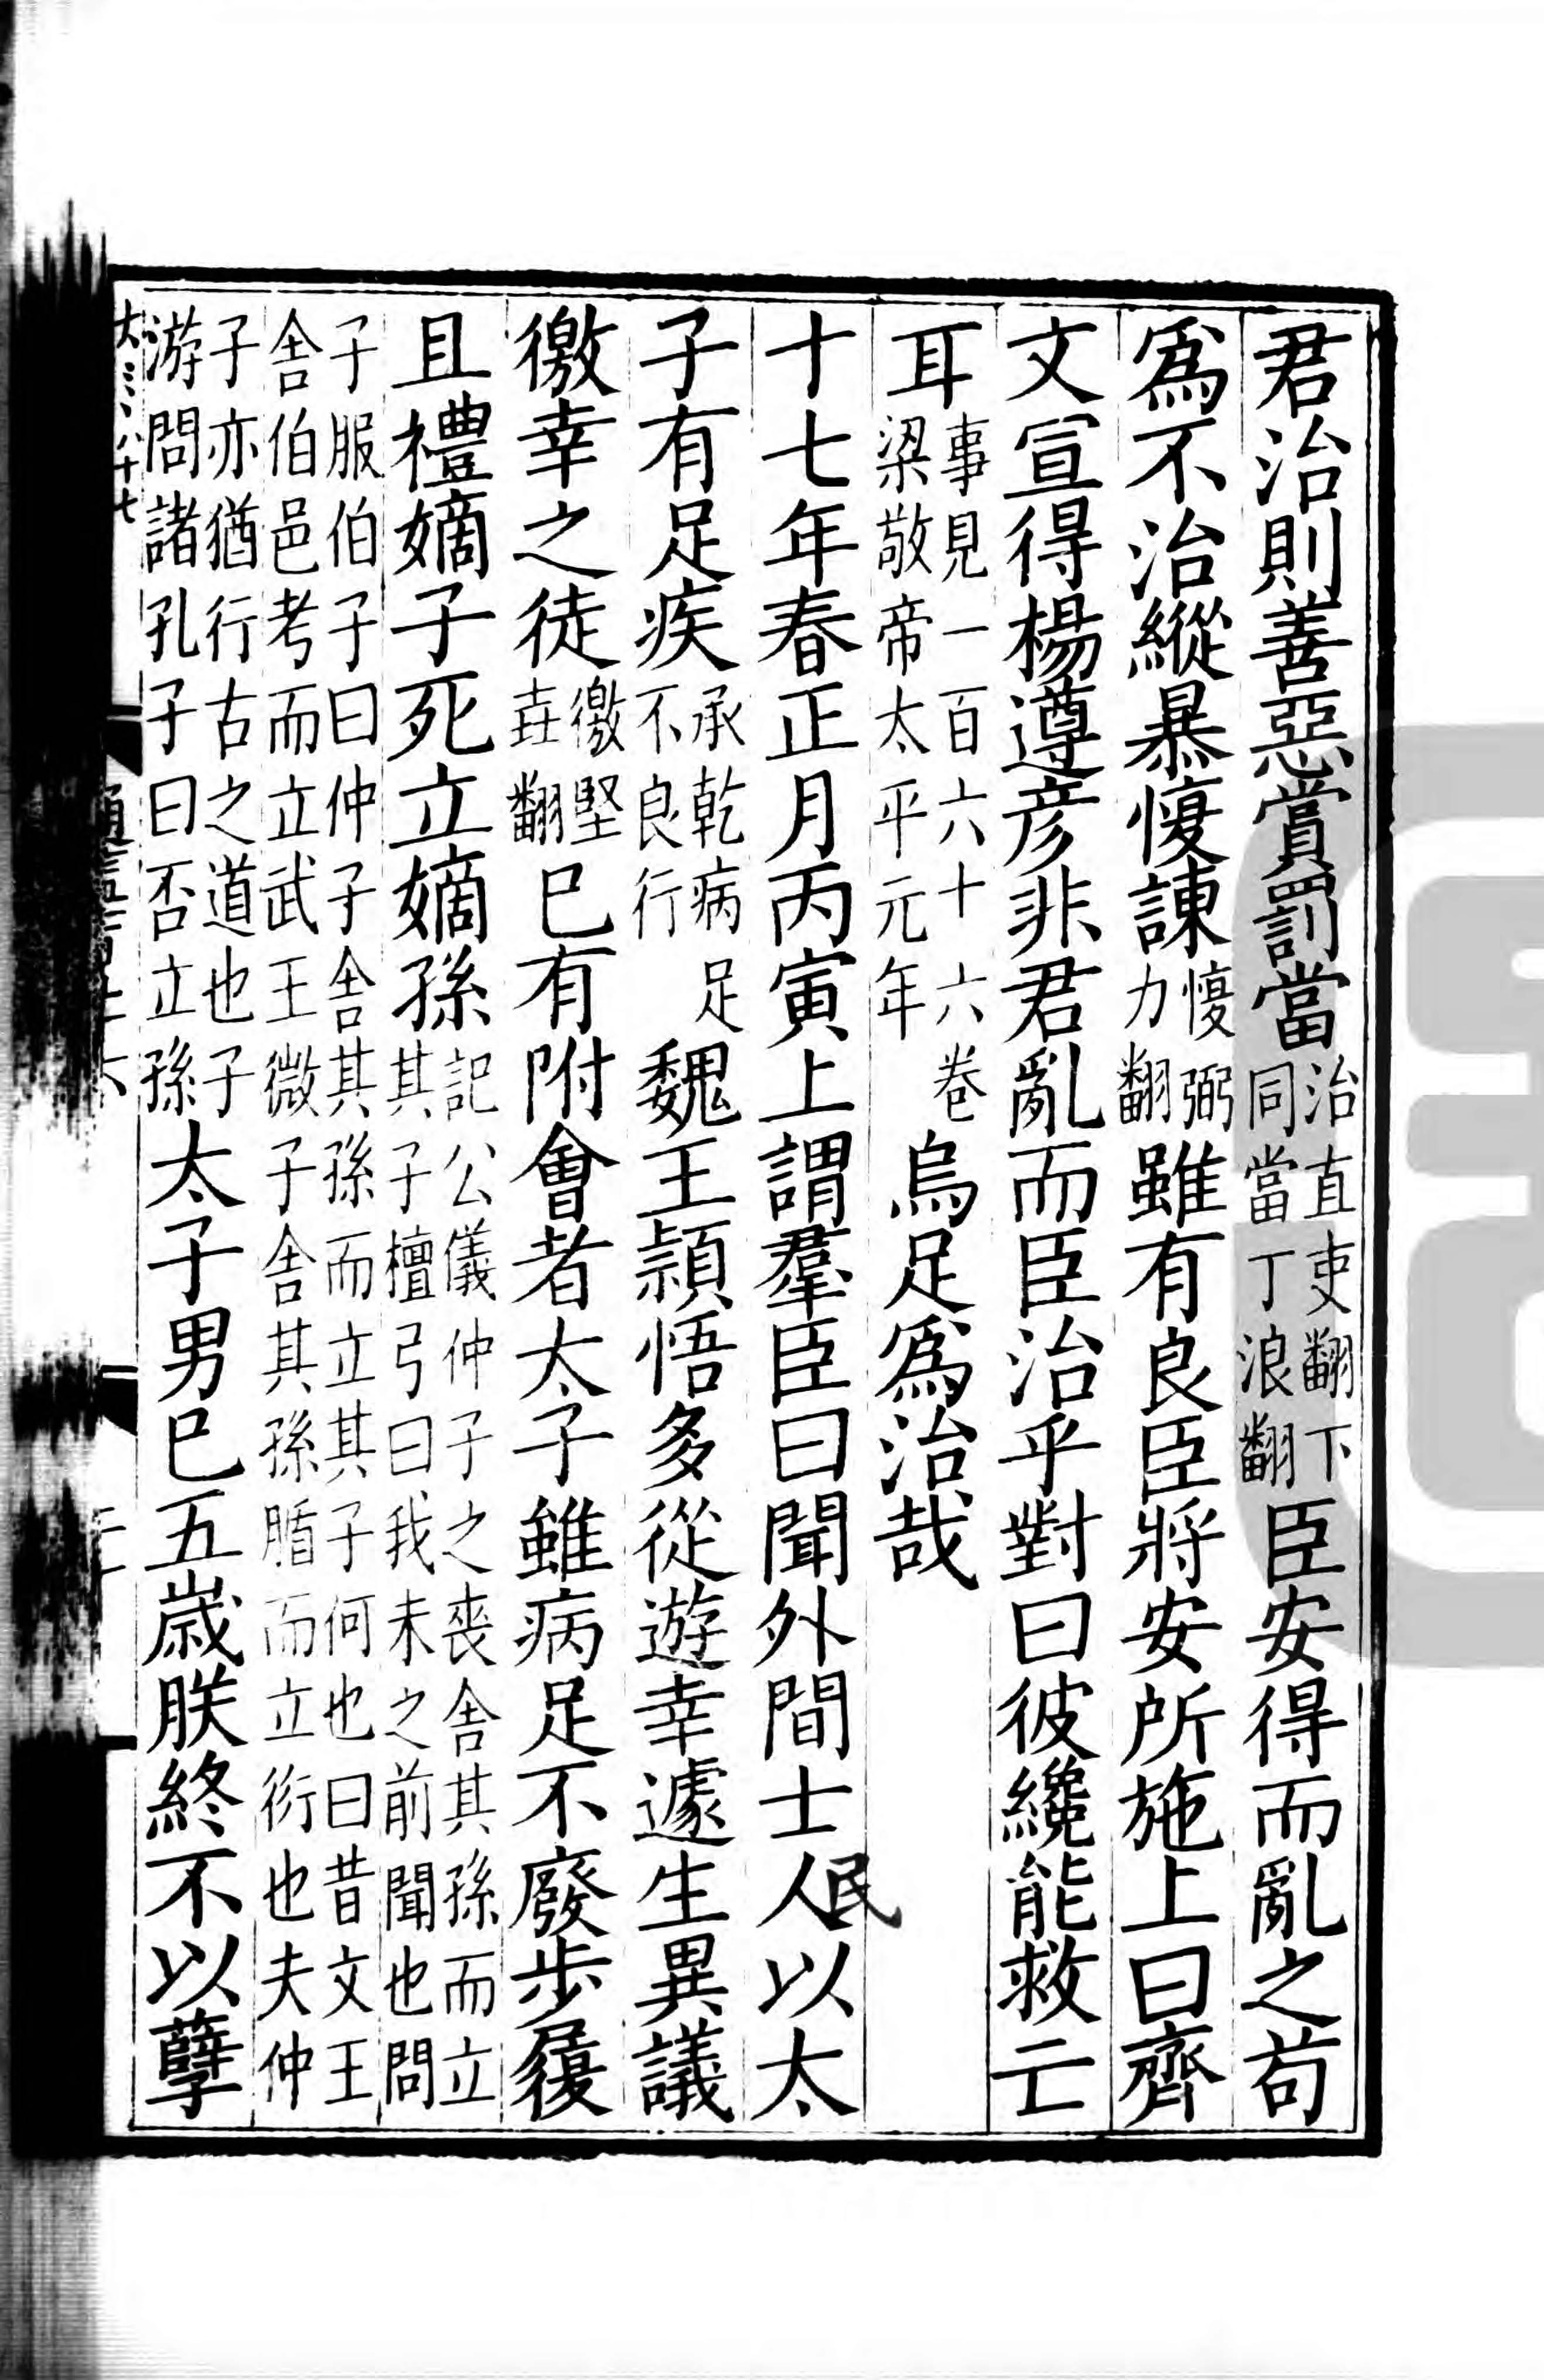 君治則善惡賞罰當治直吏翻下同當丁浪翻臣安得而亂之苟
爲不治縱暴愎諫愎弼力翻雖有良臣將安所施上曰齊
文宣得楊遵彥非君亂而臣治乎對曰彼纔能救亡
耳事見一百六十六卷梁敬帝太平元年烏足爲治哉
十七年春正月丙寅上謂羣臣曰聞外間士人民以太
子有足疾承乾病足不良行魏王穎悟多從遊幸遽生異議
徼幸之徒徼堅垚翻已有附會者太子雖病足不廢步履
且禮嫡子死立嫡孫記公儀仲子之喪舍其孫而立其子檀弓曰我未之前聞也問
子服伯子曰仲子舍其孫而立其子何也曰昔文王舍伯邑考而立武王微子舍其孫腯而立衍也夫仲
子亦猶行古之道也子游問諸孔子曰否立孫太子男已五歲朕終不以孽